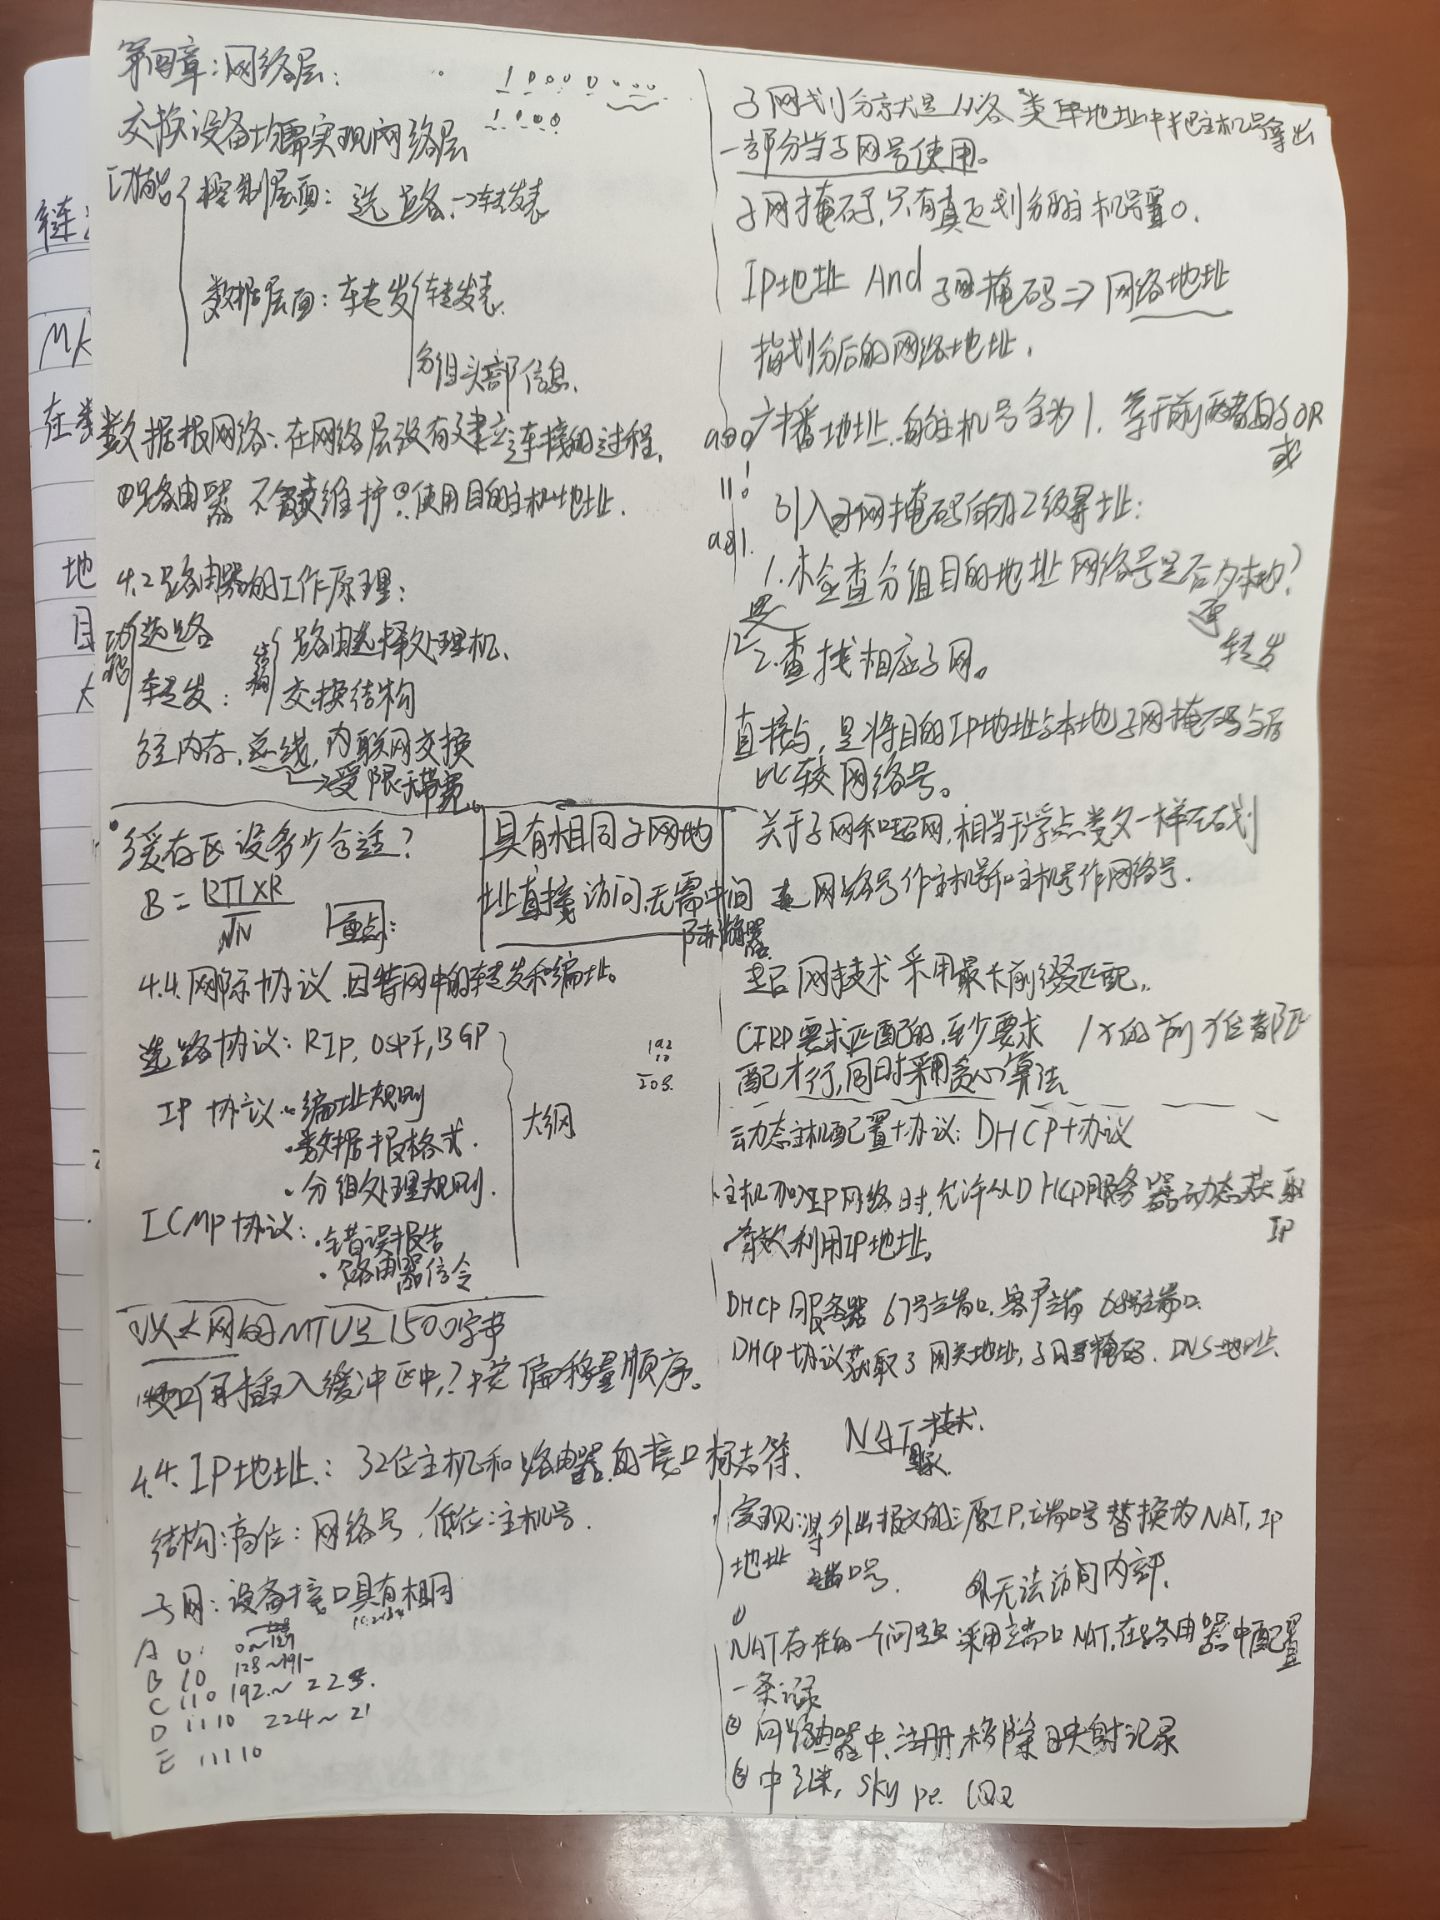 第四章：网络层：
1 0 0 0 0 0 0 0
1 1 0 0
交换设备均需实现网络层
功能
控制层面：选路→转发表
数据层面：转发
转发表
分组头部信息.
数据报网络：在网络层没有建立连接的过程，
路由器不需维护 使用目的主机地址.
4.2路由器的工作原理：
功能
选路
转发：
结构
路由选择处理机、
交换结构
经内存、总线、内联网交换
→受限于带宽。
缓存区设多少合适？
B = RTT×R
√N
重点：
具有相同子网地
址直接访问，无需中间
路由器
4.4.网际协议，因特网中的转发和编址。
选路协议：RIP, OSPF, BGP
IP协议·编址规则
·数据报格式.
·分组处理规则.
大纲
192
10
ICMP协议：·错误报告
·路由器信令
以太网的MTU是1500字节
如何插入缓冲区中，？按偏移量顺序。
4.4. IP地址：32位主机和路由器的接口标志符.
结构：高位：网络号，低位：主机号.
子网：设备接口具有相同
A 0:
B 10 128~191
C 110 192.~
D 1110 224~
E 11110
子网划分就是从各类 地址中把主机号拿出
一部分当子网号使用。
子网掩码，只有真正划分的主机号置0.
IP地址 And 子网掩码⇒网络地址
指划分后的网络地址.
广播地址，的主机号全为1.等于前两者的 OR
或
引入子网掩码后的2级寻址：
1.检查分组目的地址网络号是否为本地？
是
否
转发
2.查找相应子网。
直接与，是将目的IP地址与本地子网掩码与后
比较网络号。
关于子网和超网，相当于
网络号作主机号和主机号作网络号.
超网技术采用最长前缀匹配.
要求匹配的，至少要求 1x的前x位都匹
配才行，同时采用贪心算法
动态主机配置协议：DHCP协议
主机加入IP网络时，允许从DHCP服务器动态获取
IP
有效利用IP地址。
DHCP服务器 67号端口，客户端 68号端口.
DHCP协议获取了网关地址，子网掩码、DNS地址.
NAT技术.
实现：将外出报文的源IP，端口号替换为NAT, IP
地址 端口号.
外无法访问内部.
①
NAT存在的一个问题 采用端口NAT，在路由器中配置
一条记录
② 向路由器中，注册，移除映射记录
③ 中继，skype. QQ